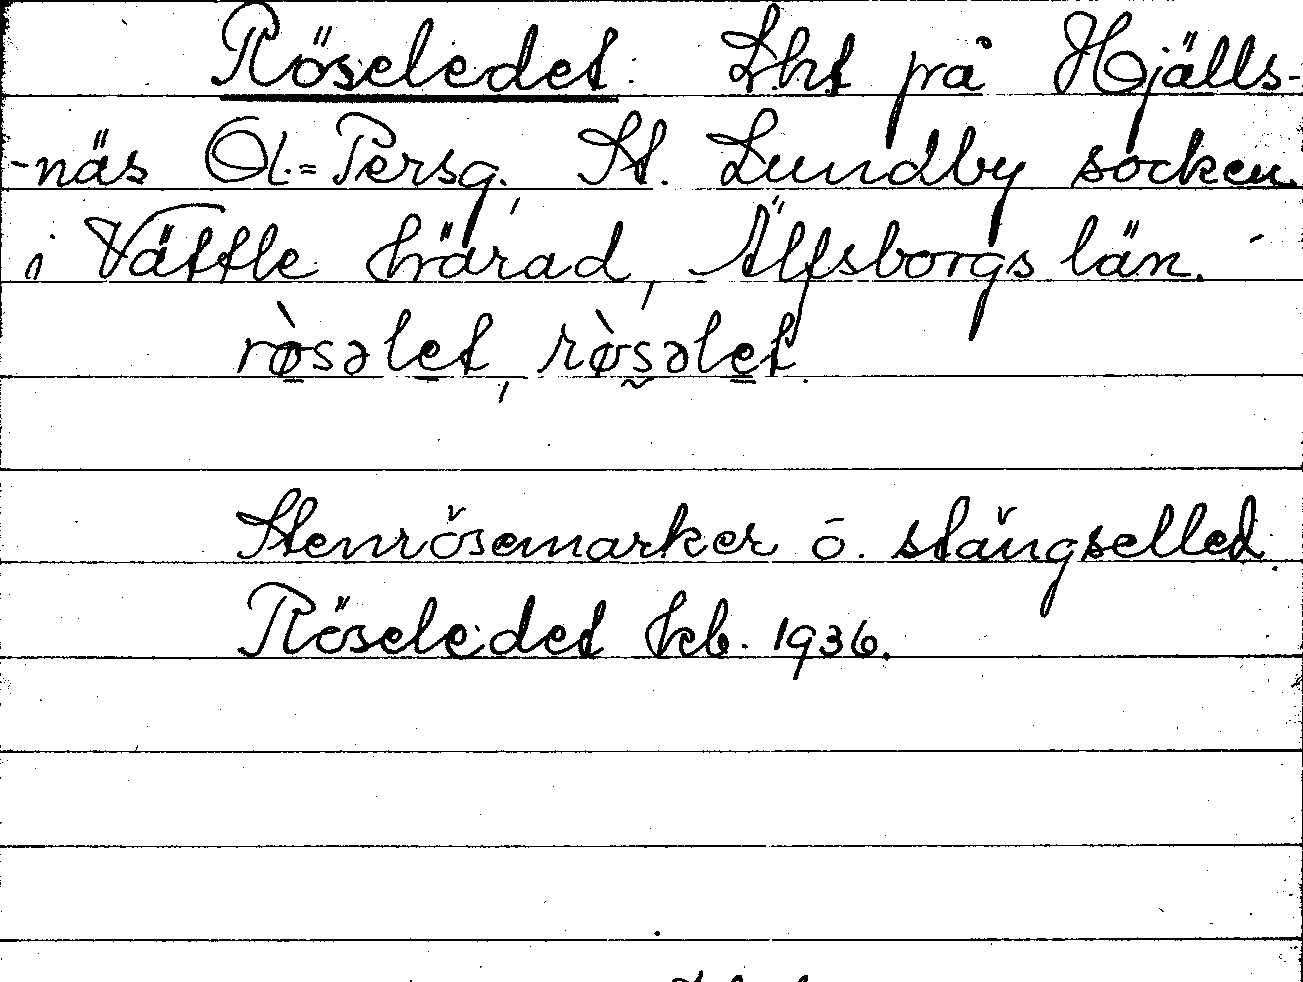 Röseledet. Lht på Hjälls-
-näs Ol.=Persg., St. Lundby socken
i Vättle härad, Älfsborgs län.
rø̀səlet, rø̀səlet.
Stenrösemarker o. stängselled.
Röseledet kb. 1936.